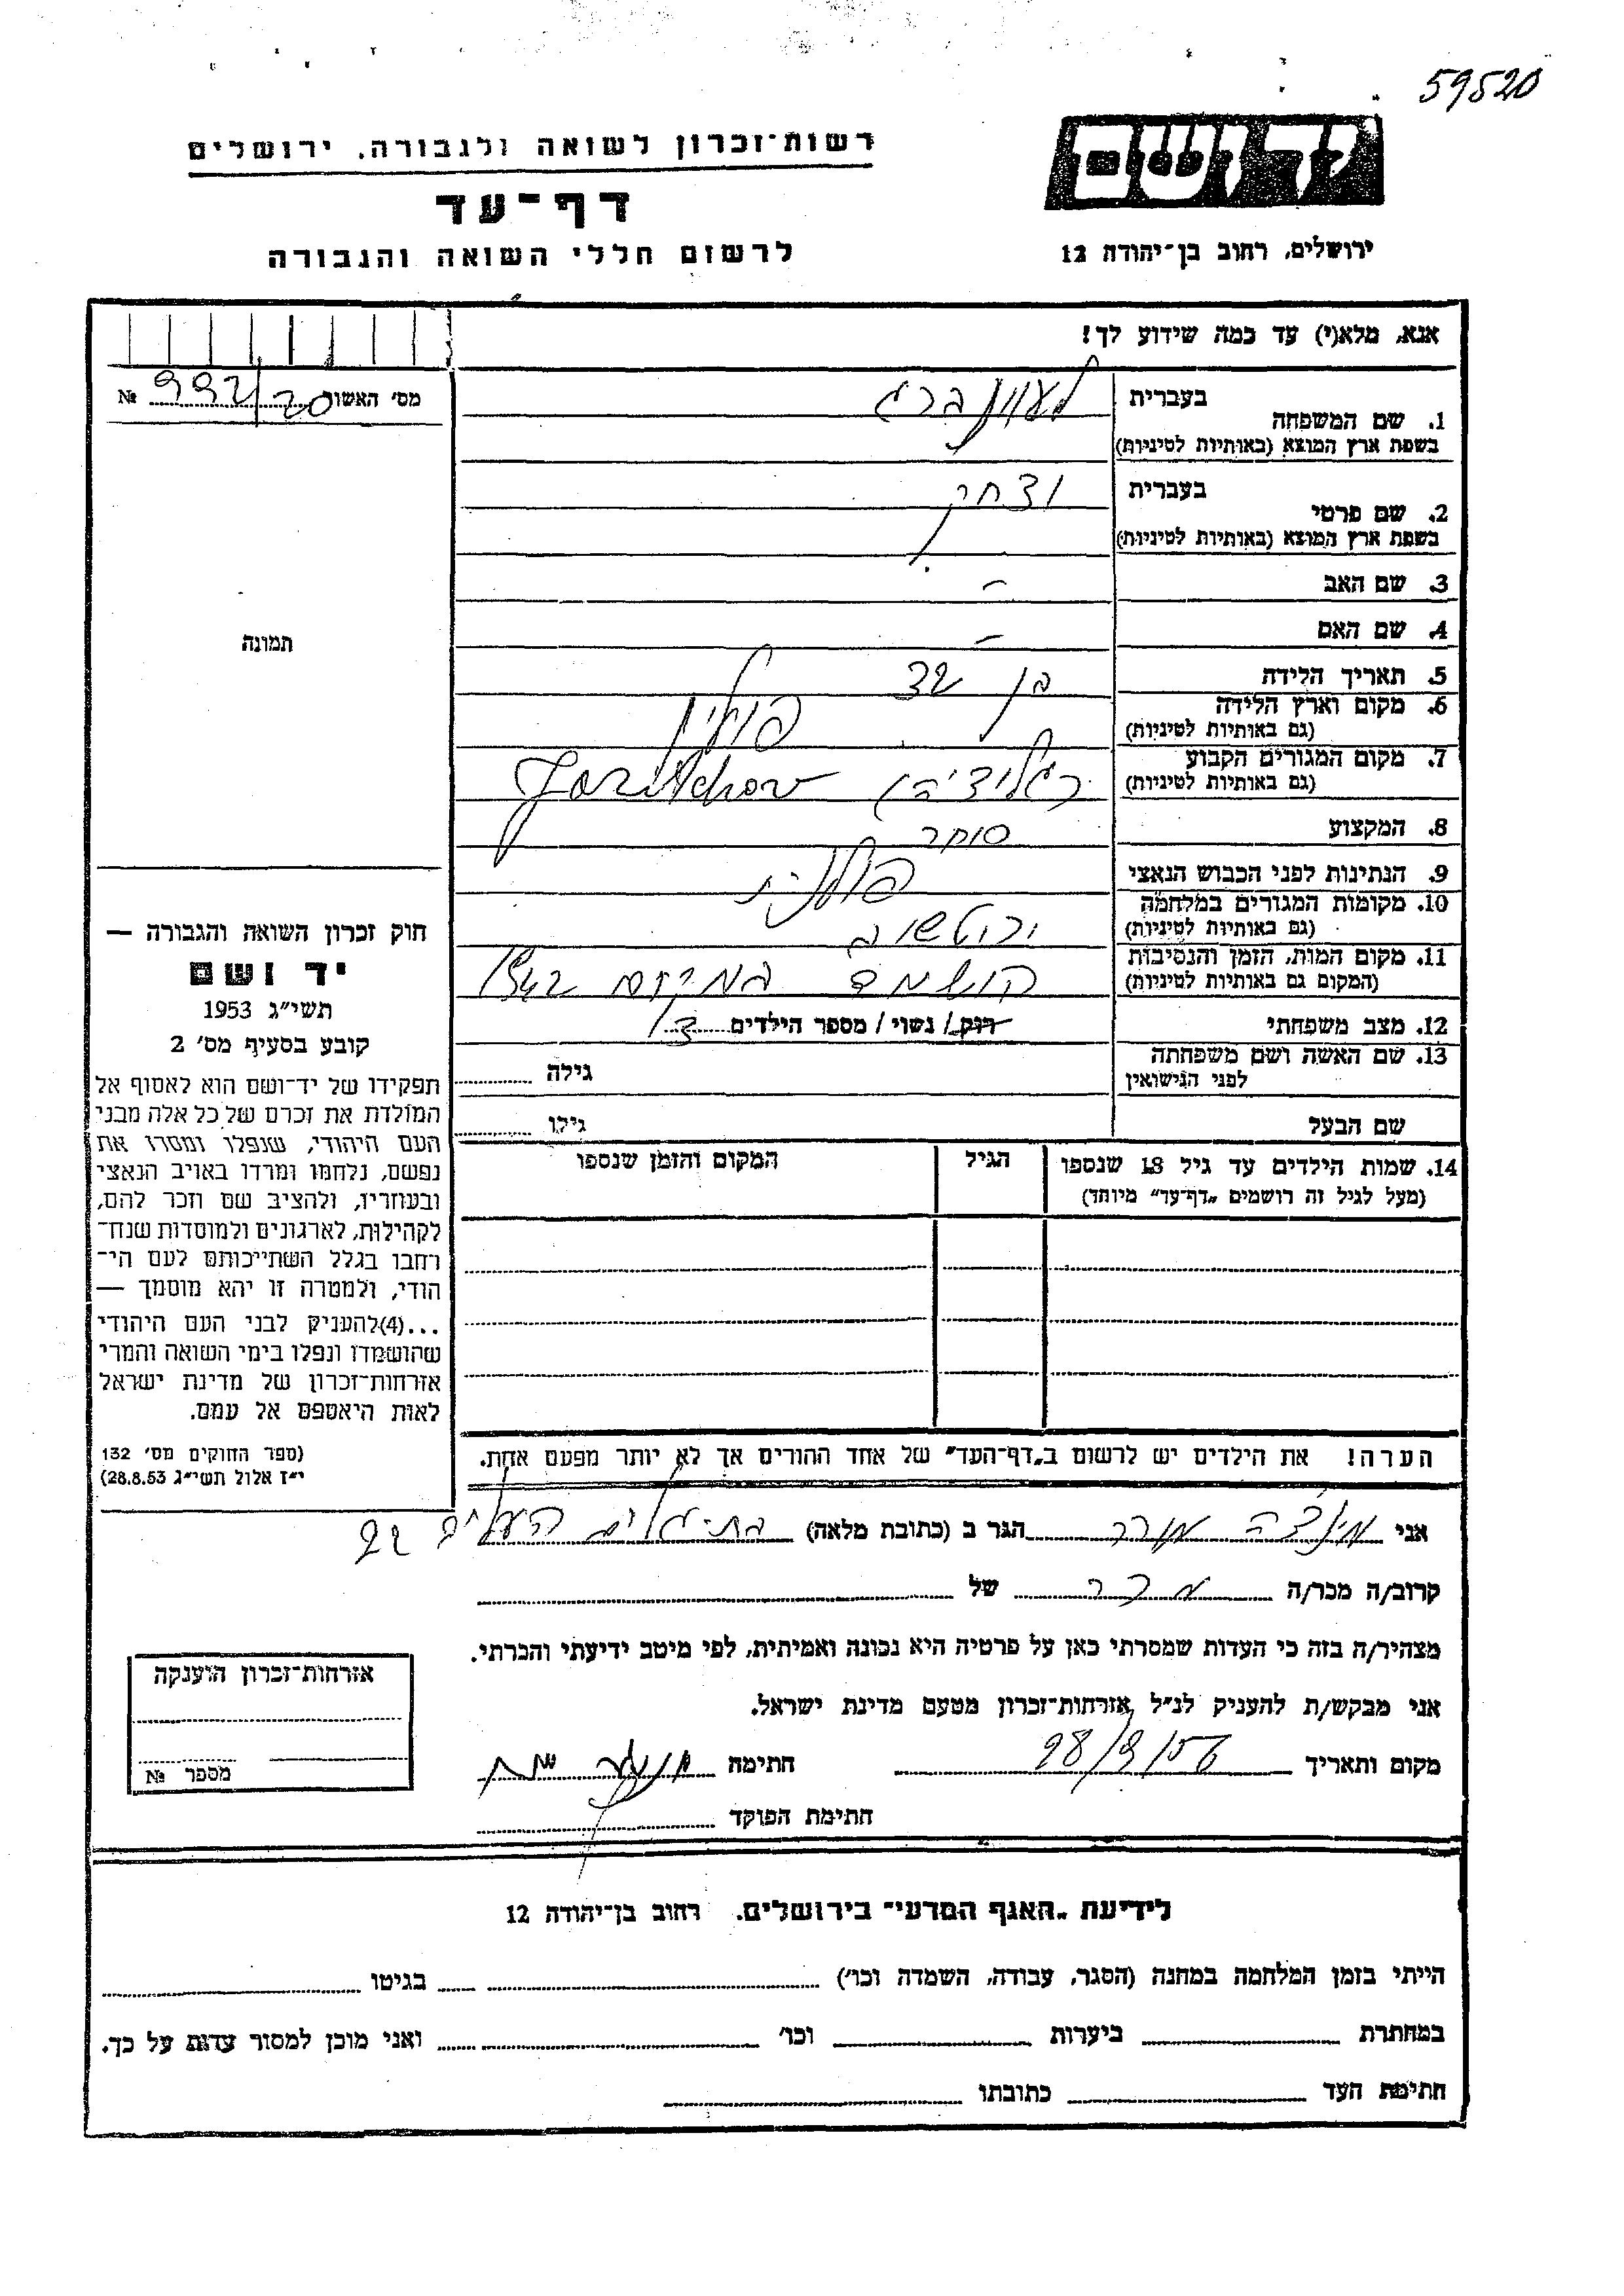 59520
יד ושם
רשות־זכרון לשואה ולגבורה, ירושלים
דף־עד
לרשום חללי השואה והגבורה
ירושלים, רחוב בן־יהודה 12
אנא, מלא(י) עד כמה שידוע לך!
מס' האשור 992/20 №
תמונה
1. שם המשפחה
בעברית
בשפת ארץ המוצא (באותיות לטיניות)
2. שם פרטי
בעברית יצחק
בשפת ארץ המוצא (באותיות לטיניות)
3. שם האב –
4. שם האם –
5. תאריך הלידה בן 32
6. מקום וארץ הלידה פולין
(גם באותיות לטיניות)
7. מקום המגורים הקבוע (גליציה)
(גם באותיות לטיניות)
8. המקצוע סוחר
9. הנתינות לפני הכבוש הנאצי פולנית
10. מקומות המגורים במלחמה
(גם באותיות לטיניות)
11. מקום המות, הזמן והנסיבות הושמד במקום 1942
(המקום גם באותיות לטיניות)
12. מצב משפחתי רווק / נשוי / מספר הילדים 3
13. שם האשה ושם משפחתה גילה
לפני הנישואין
שם הבעל גילו
14. שמות הילדים עד גיל 18 שנספו הגיל המקום והזמן שנספו
(מעל לגיל זה רושמים „דף־עד" מיוחד)
הערה! את הילדים יש לרשום ב„דף־העד" של אחד ההורים אך לא יותר מפעם אחת.
חוק זכרון השואה והגבורה —
יד ושם
תשי"ג 1953
קובע בסעיף מס' 2
תפקידו של יד־ושם הוא לאסוף אל
המולדת את זכרם של כל אלה מבני
העם היהודי, שנפלו ומסרו את
נפשם, נלחמו ומרדו באויב הנאצי
ובעוזריו, ולהציב שם וזכר להם,
לקהילות, לארגונים ולמוסדות שנח־
רחבו בגלל השתייכותם לעם הי־
הודי, ולמטרה זו יהא מוסמך —
...(4)להעניק לבני העם היהודי
שהושמדו ונפלו בימי השואה והמרי
אזרחות־זכרון של מדינת ישראל
לאות היאספם אל עמם.
(ספר החוקים מס' 132
י"ז אלול תשי"ג 28.8.53)
אני הגר ב (כתובת מלאה) בת־גלים העליה 22
קרוב/ה מכר/ה מכר של
מצהיר/ה בזה כי העדות שמסרתי כאן על פרטיה היא נכונה ואמיתית, לפי מיטב ידיעתי והכרתי.
אני מבקש/ת להעניק לנ"ל אזרחות־זכרון מטעם מדינת ישראל.
מקום ותאריך חתימה
חתימת הפוקד
אזרחות־זכרון הוענקה
מספר №
לידיעת „האגף המדעי" בירושלים. רחוב בן־יהודה 12
הייתי בזמן המלחמה במחנה (הסגר, עבודה, השמדה וכו') בגיטו
במחתרת ביערות וכו' ואני מוכן למסור עדות על כך.
חתימת העד כתובתו